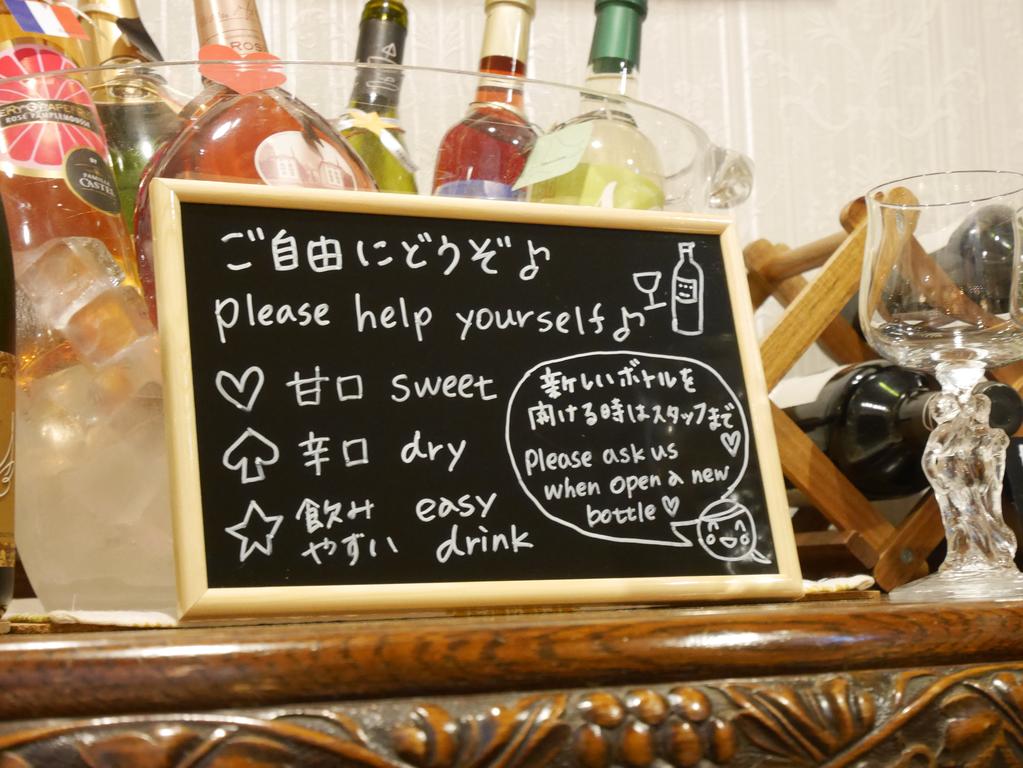 ご自由にどうぞ♪
please help yourself♪
♡ 甘口 sweet
♤ 辛口 dry
☆ 飲み easy
やすい drink
新しいボトルを
開ける時はスタッフまで♡
please ask us
when open a new
bottle♡
ROSÉ PAMPLEMOUSSE
FAMILLE
CASTEL
ROS